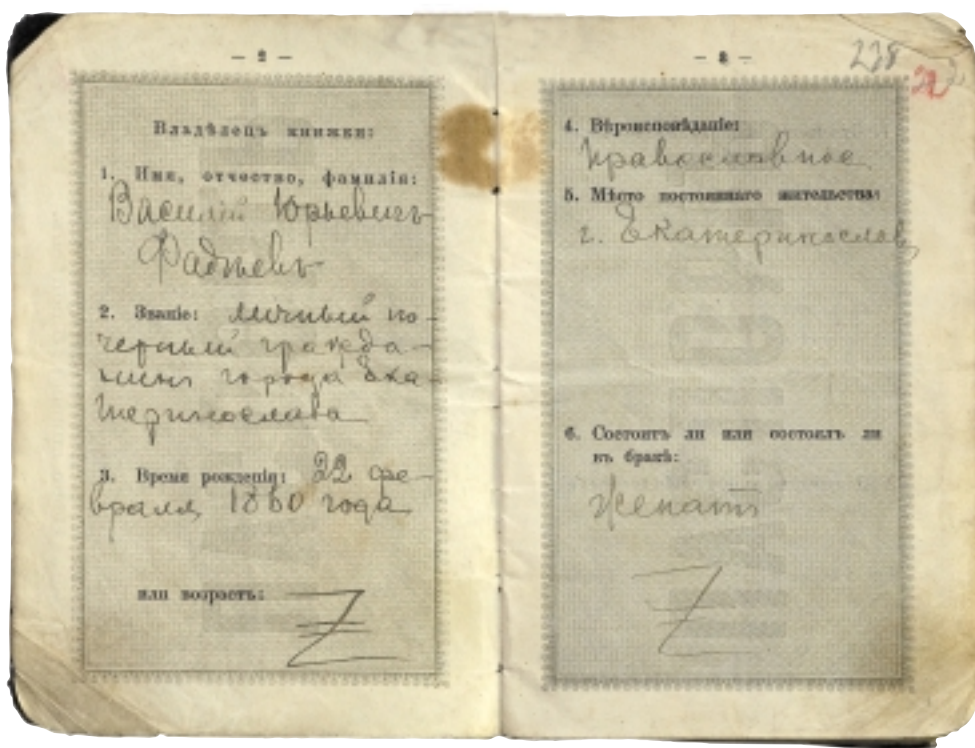 — 2 —
Владѣлецъ книжки:
1. Имя, отчество, фамилія:
Василій Юрьевичъ
Фадѣевъ
2. Званіе: личный по-
четный гражда-
нинъ города Ека-
теринослава
3. Время рожденія: 22 фе-
враля 1860 года
или возрастъ:
— 3 —
238
4. Вѣроисповѣданіе:
православное
5. Мѣсто постояннаго жительства:
г. Екатеринославъ
6. Состоитъ ли или состоялъ ли
въ бракѣ:
Женатъ